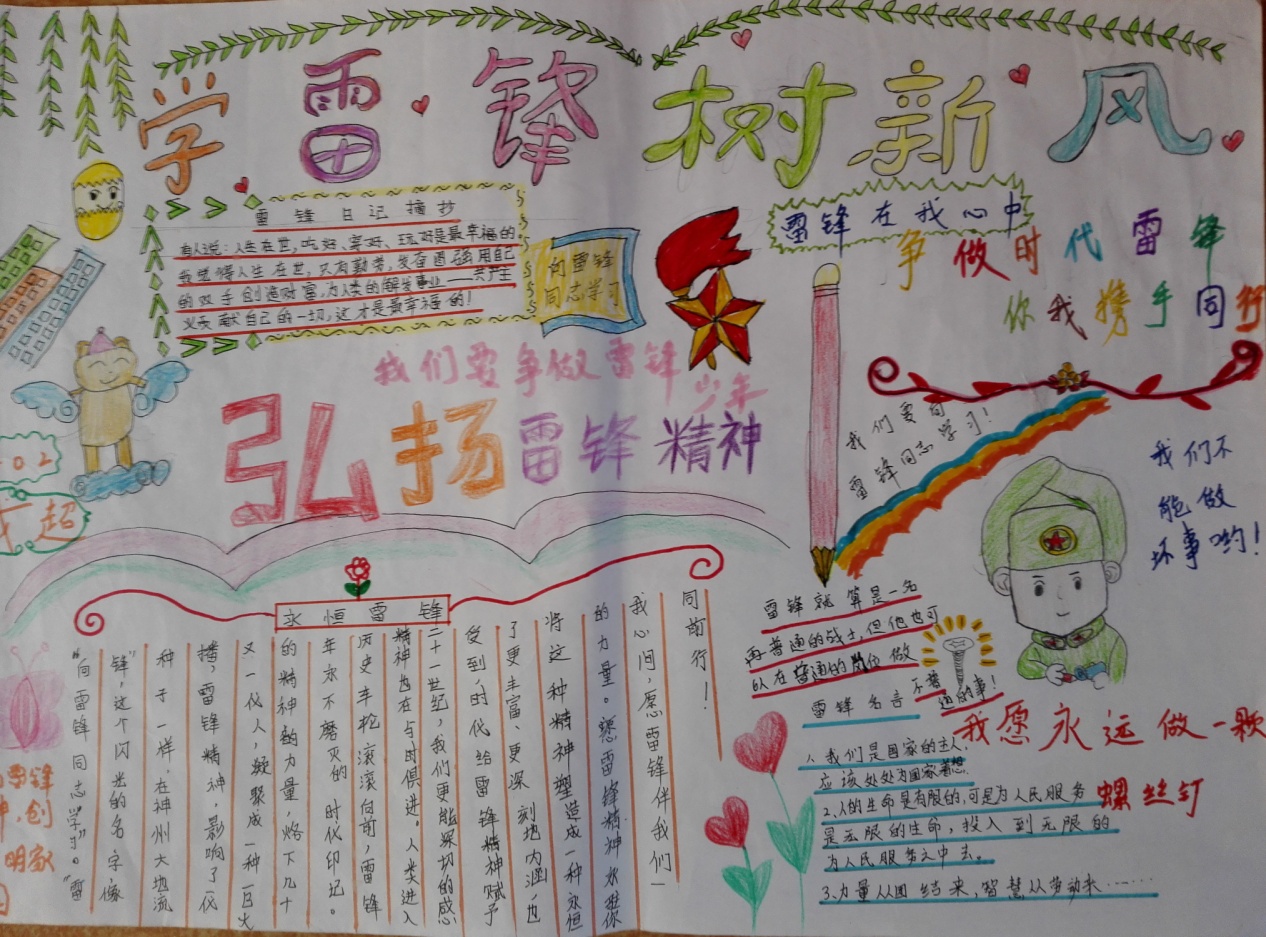 学雷锋树新风
雷锋日记摘抄
有人说：人生在世，吃好、穿好、玩好是最幸福的
我觉得人生在世，只有勤劳，发奋图强用自己
的双手创造财富，为人类的解放事业——共产主
义贡献自己的一切，这才是最幸福的！
向雷锋
同志学习
雷锋在我心中
争做时代雷锋
你我携手同行
我们要争做雷锋
少年
弘扬雷锋精神
我们要向
雷锋同志学习！
我们不
能做
坏事哟！
02
超
永恒雷锋
“向雷锋同志学习”。“雷
锋”，这个闪光的名字像
种子一样，在神州大地流
播，雷锋精神，影响了一代
又一代人，凝聚成一种巨大
的精神的力量，烙下几十
年永不磨灭的时代印记。
历史车轮滚滚向前，雷锋
精神也在与时俱进。人类进入
二十一世纪，我们更能深切的感
受到，时代给雷锋精神赋予
了更丰富、更深刻地内涵，也
将这种精神塑造成一种永恒
的力量。愿雷锋精神永驻你
我心间，愿雷锋伴我们一
同前行！
雷锋
神，创
明家
雷锋就算是一名
再普通的战士，但他也可
以在普通的岗位做
不普
通的事！
雷锋名言
1、我们是国家的主人，
应该处处为国家着想。
2、人的生命是有限的，可是为人民服务
是无限的生命，投入到无限的
为人民服务之中去。
3、力量从团结来，智慧从劳动来……
我愿永远做一颗
螺丝钉